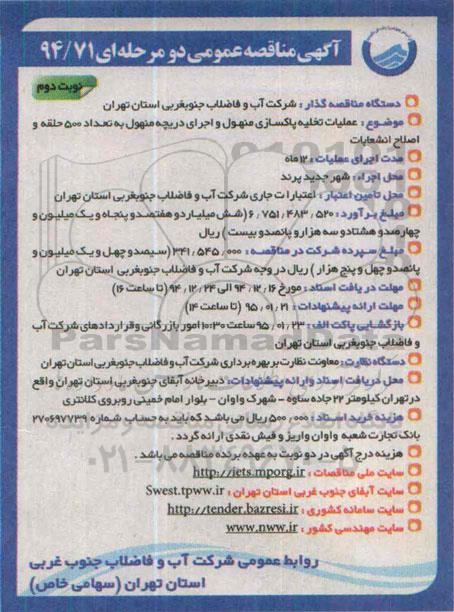 آگهی مناقصه عمومی دو مرحله‌ای ۹۴/۷۱
نوبت دوم
دستگاه مناقصه گذار : شرکت آب و فاضلاب جنوبغربی استان تهران
موضوع : عملیات تخلیه پاکسازی منهول و اجرای دریچه منهول به تعداد ۵۰۰ حلقه و
اصلاح انشعابات
مدت اجرای عملیات : ۱۲ ماه
محل اجراء : شهر جدید پرند
محل تامین اعتبار : اعتبارات جاری شرکت آب و فاضلاب جنوبغربی استان تهران
مبلغ برآورد : ۶/۷۵۱/۴۸۳/۵۲۰ (شش میلیارد و هفتصد و پنجاه و یک میلیون و
چهارصد و هشتاد و سه هزار و پانصد و بیست ) ریال
مبلغ سپرده شرکت در مناقصه : ۳۴۱/۵۴۵/۰۰۰ (سیصد و چهل و یک میلیون و
پانصد و چهل و پنج هزار ) ریال در وجه شرکت آب و فاضلاب جنوبغربی استان تهران
مهلت دریافت اسناد : مورخ ۹۴/۱۲/۱۶ الی ۹۴/۱۲/۲۴ (تا ساعت ۱۶)
مهلت ارائه پیشنهادات : ۹۵/۰۱/۲۱ (تا ساعت ۱۴)
بازگشایی پاکت الف : ۹۵/۰۱/۲۳ ساعت ۱۰:۳۰ امور بازرگانی و قراردادهای شرکت آب و
فاضلاب جنوبغربی استان تهران
دستگاه نظارت : معاونت نظارت بر بهره برداری شرکت آب و فاضلاب جنوبغربی استان تهران
محل دریافت اسناد و ارائه پیشنهادات : دبیرخانه آبفای جنوبغربی استان تهران واقع
در تهران کیلومتر ۲۲ جاده ساوه – شهرک واوان – بلوار امام خمینی روبروی کلانتری
هزینه خرید اسناد : ۵۰۰/۰۰۰ ریال می باشد که باید به حساب شماره ۲۷۰۶۹۷۷۳۹
بانک تجارت شعبه واوان واریز و فیش نقدی ارائه گردد .
هزینه درج آگهی در دو نوبت به عهده برنده مناقصه می باشد .
سایت ملی مناقصات : http://iets.mporg.ir
سایت آبفای جنوب غربی استان تهران : Swest.tpww.ir
سایت سامانه کشوری : http://tender.bazresi.ir
سایت مهندسی کشور : www.nww.ir
روابط عمومی شرکت آب و فاضلاب جنوب غربی
استان تهران (سهامی خاص)